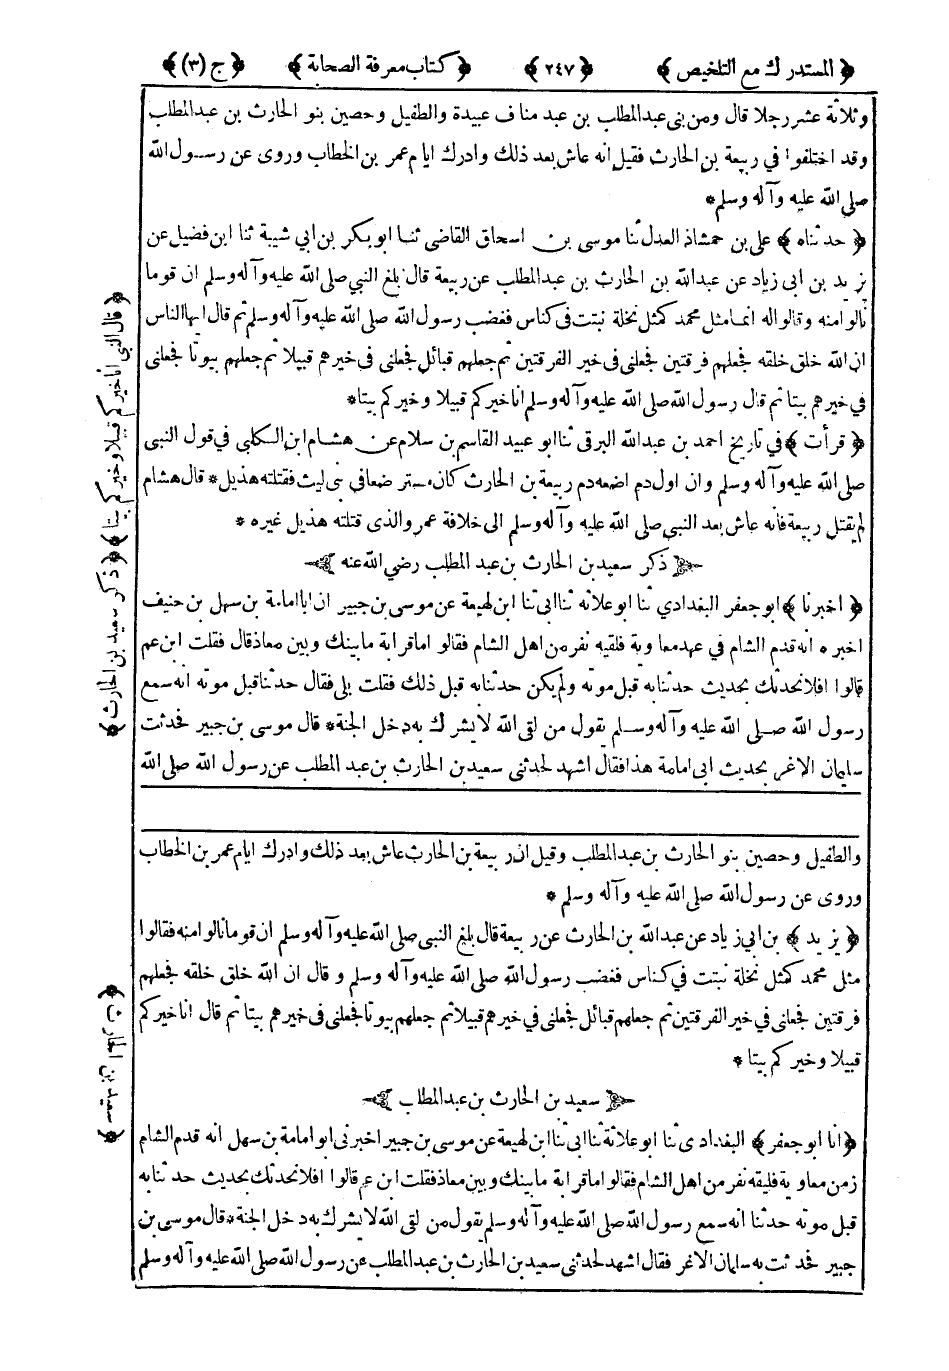 ﴿ المستدرك مع التلخيص ﴾ ﴿ ٢٤٧ ﴾ ﴿ كتاب معرفة الصحابة ﴾ ﴿ ج (٣) ﴾
وثلاثة عشر رجلا قال ومن بنى عبدالمطلب بن عبد مناف عبيدة والطفيل وحصين بنو الحارث بن عبدالمطلب
وقد اختلفوا في ربيعة بن الحارث فقيل انه عاش بعد ذلك وادرك ايام عمر بن الخطاب وروى عن رسول الله
صلى الله عليه وآله وسلم*
﴿ حدثناه ﴾ على بن حمشاذ العدل ثنا موسى بن اسحاق القاضى ثنا ابو بكر بن ابي شيبة ثنا ابن فضيل عن
يزيد بن ابى زياد عن عبدالله بن الحارث بن عبدالمطلب عن ربيعة قال بلغ النبي صلى الله عليه وآله وسلم ان قوما
نالوا منه وقالوا له انما مثل محمد كمثل نخلة نبتت فى كناس فغضب رسول الله صلى الله عليه وآله وسلم ثم قال ايها الناس
ان الله خلق خلقه فجعلهم فرقتين فجعلنى في خير الفرقتين ثم جعلهم قبائل فجعلنى فى خيرهم قبيلا ثم جعلهم بيوتا فجعلنى
في خيرهم بيتا ثم قال رسول الله صلى الله عليه وآله وسلم انا خيركم قبيلا وخيركم بيتا*
﴿ قرأت ﴾ في تاريخ احمد بن عبدالله البرقى ثنا ابو عبيد القاسم بن سلام عن هشام ابن الكلبى في قول النبى
صلى الله عليه وآله وسلم وان اول دم اضعه دم ربيعة بن الحارث كان مسترضعا في بنى ليث فقتلته هذيل* قال هشام
لم يقتل ربيعة فانه عاش بعد النبي صلى الله عليه وآله وسلم الى خلافة عمر والذى قتلته هذيل غيره *
ذكر سعيد بن الحارث بن عبد المطلب رضي الله عنه
﴿ اخبرنا ﴾ ابو جعفر البغدادي ثنا ابو علاثة ثنا ابى ثنا ابن لهيعة عن موسى بن جبير ان ابا امامة بن سهل بن حنيف
اخبره انه قدم الشام في عهد معاوية فلقيه نفر من اهل الشام فقالوا ما قرابة ما بينك وبين معاذ قال فقلت ابن عم
قالوا افلا نحدثك بحديث حدثنا به قبل موته ولم يكن حدثنا به قبل ذلك فقلت بلى فقال حدثنا قبل موته انه سمع
رسول الله صلى الله عليه وآله وسلم يقول من لقى الله لا يشرك به دخل الجنة* قال موسى بن جبير فحدثت
سليمان الاغر بحديث ابى امامة هذا فقال اشهد لحدثنى سعيد بن الحارث بن عبد المطلب عن رسول الله صلى الله
والطفيل وحصين بنو الحارث بن عبدالمطلب وقيل ان ربيعة بن الحارث عاش بعد ذلك وادرك ايام عمر بن الخطاب
وروى عن رسول الله صلى الله عليه وآله وسلم *
﴿ يزيد ﴾ بن ابي زياد عن عبدالله بن الحارث عن ربيعة قال بلغ النبى صلى الله عليه وآله وسلم ان قوما نالوا منه فقالوا
مثل محمد كمثل نخلة نبتت في كناس فغضب رسول الله صلى الله عليه وآله وسلم وقال ان الله خلق خلقه فجعلهم
فرقتين فجعلنى في خير الفرقتين ثم جعلهم قبائل فجعلنى في خيرهم قبيلا ثم جعلهم بيوتا فجعلنى فى خيرهم بيتا ثم قال انا خيركم
قبيلا وخيركم بيتا *
سعيد بن الحارث بن عبدالمطلب
﴿ انا ابو جعفر ﴾ البغدادى ثنا ابو علاثة ثنا ابى ثنا ابن لهيعة عن موسى بن جبير اخبرنى ابو امامة بن سهل انه قدم الشام
زمن معاوية فليقه نفر من اهل الشام فقالوا ما قرابة ما بينك وبين معاذ فقلت ابن عم قالوا افلا نحدثك بحديث حدثنا به
قبل موته حدثنا انه سمع رسول الله صلى الله عليه وآله وسلم يقول من لقى الله لا يشرك به دخل الجنة* قال موسى بن
جبير فحدثت به سليمان الاغر فقال اشهد لحدثنى سعيد بن الحارث بن عبدالمطلب عن رسول الله صلى الله عليه وآله وسلم
﴿ قال النبى انا خيركم قبيلا وخيركم بيتا ﴾ ﴿ ذكر سعيد بن الحارث ﴾
﴿ سعيد بن الحارث ﴾